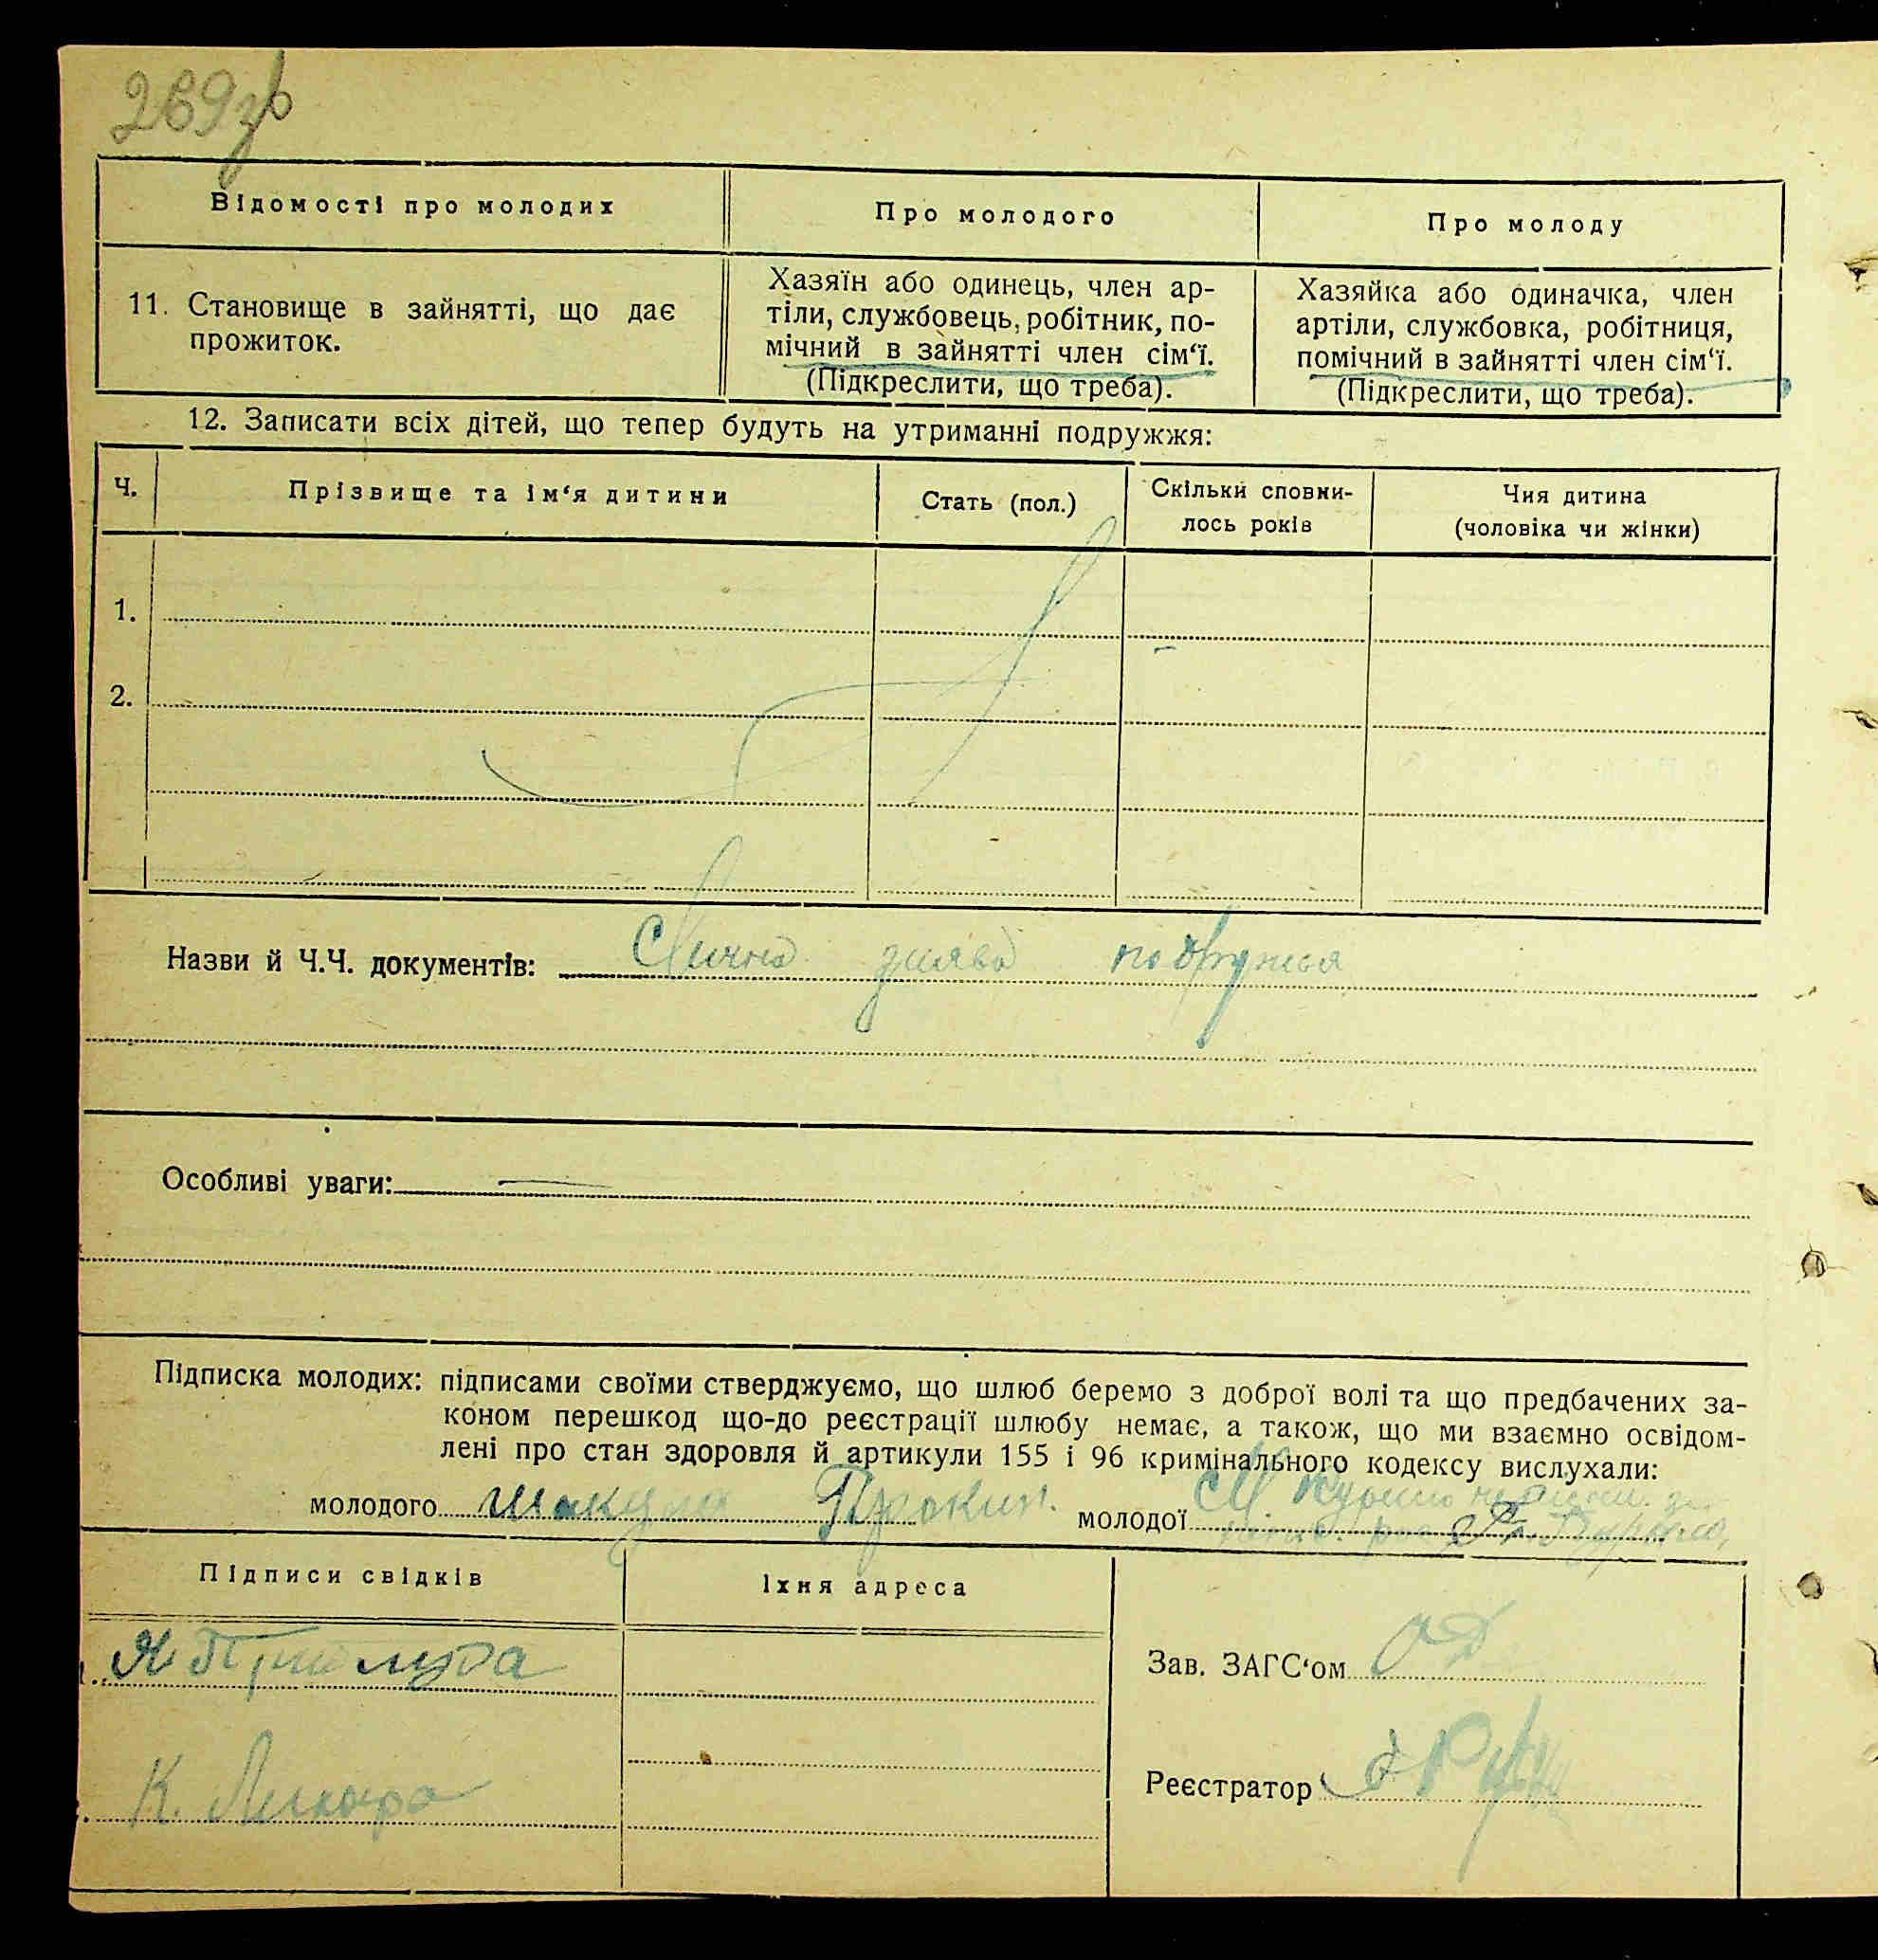 269зв
Відомості про молодих
Про молодого
Про молоду
11. Становище в зайнятті, що дає
прожиток.
Хазяїн або одинець, член ар-
тіли, службовець, робітник, по-
мічний в зайнятті член сім‘ї.
(Підкреслити, що треба).
Хазяйка або одиначка, член
артіли, службовка, робітниця,
помічний в зайнятті член сім‘ї.
(Підкреслити, що треба).
12. Записати всіх дітей, що тепер будуть на утриманні подружжя:
Ч.
Прізвище та ім‘я дитини
Стать (пол.)
Скільки сповни-
лось років
Чия дитина
(чоловіка чи жінки)
1.
2.
Назви й Ч.Ч. документів: заява
Особливі уваги: —
Підписка молодих: підписами своїми стверджуємо, що шлюб беремо з доброї волі та що предбачених за-
коном перешкод що-до реєстрації шлюбу немає, а також, що ми взаємно освідом-
лені про стан здоровля й артикули 155 і 96 кримінального кодексу вислухали:
молодого Шакула Прокип.
молодої
Підписи свідків
Їхня адреса
Я Прилуда
К.
Зав. ЗАГС‘ом
Реєстратор